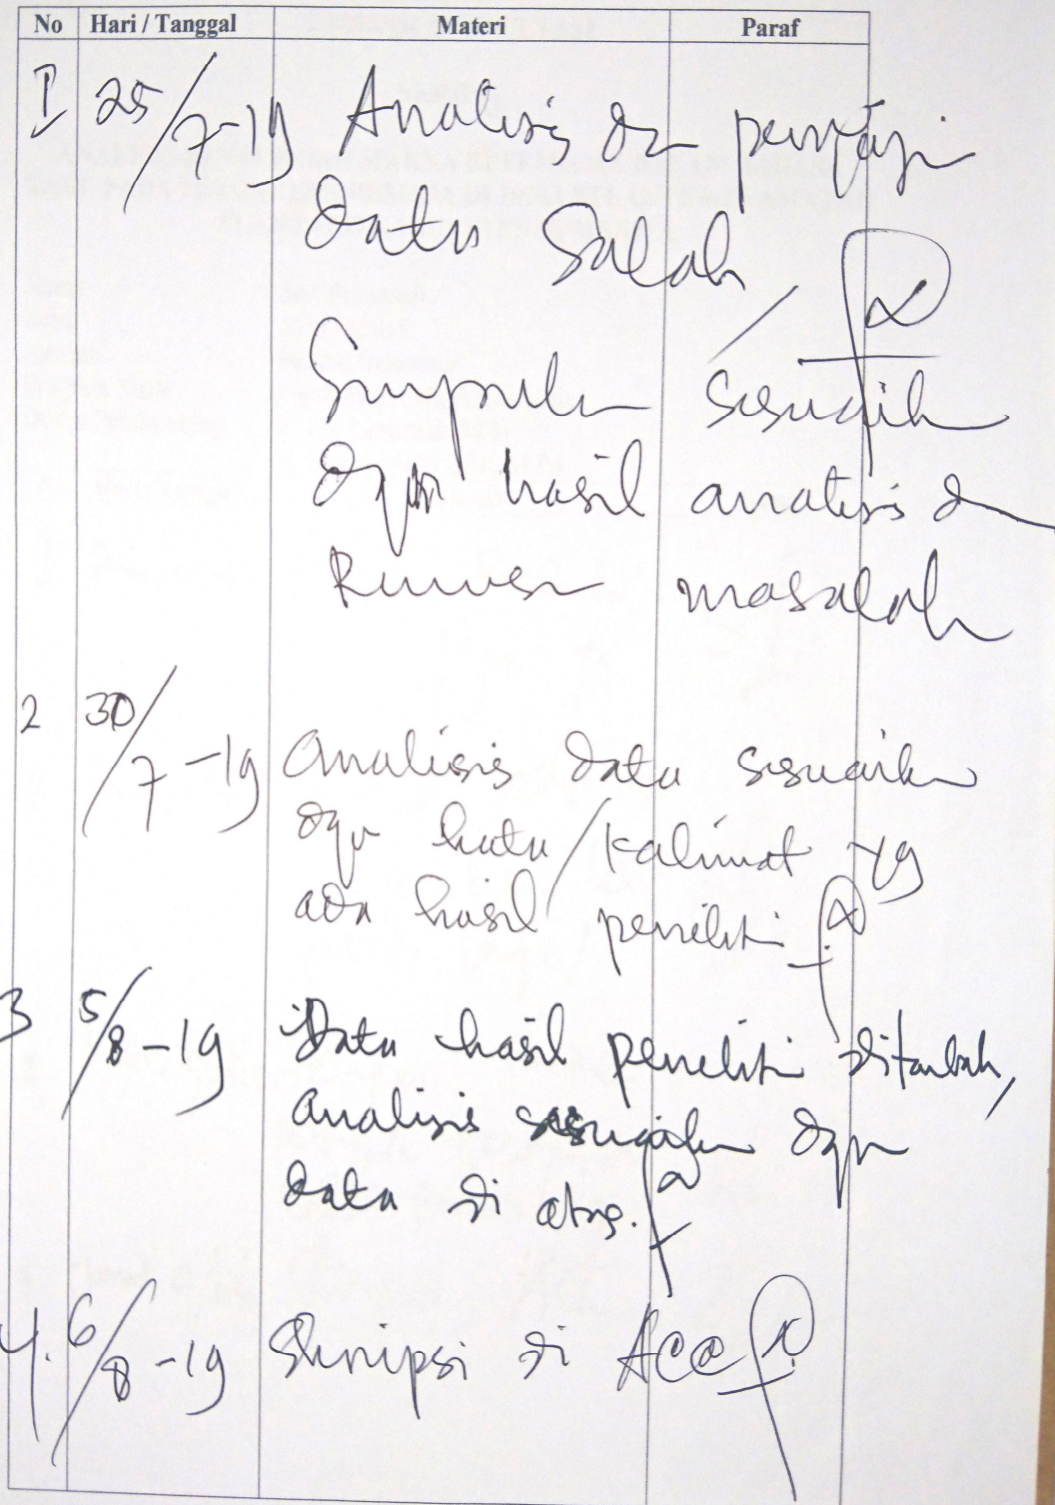 No Hari / Tanggal Materi Paraf
I 25/7-19 Analisis dn penyaji
data salah /
Simpulan sesuaik
dgn hasil analisis dn
Rumusn masalah
2 30/7-19 Analisis data sesuaikn
dgn kata/kalimat yg
ada hasil peneliti
3 5/8-19 Data hasil peneliti ditambah,
analisis sesuaikn dgn
data di atas.
4. 6/8-19 Skripsi di Acc